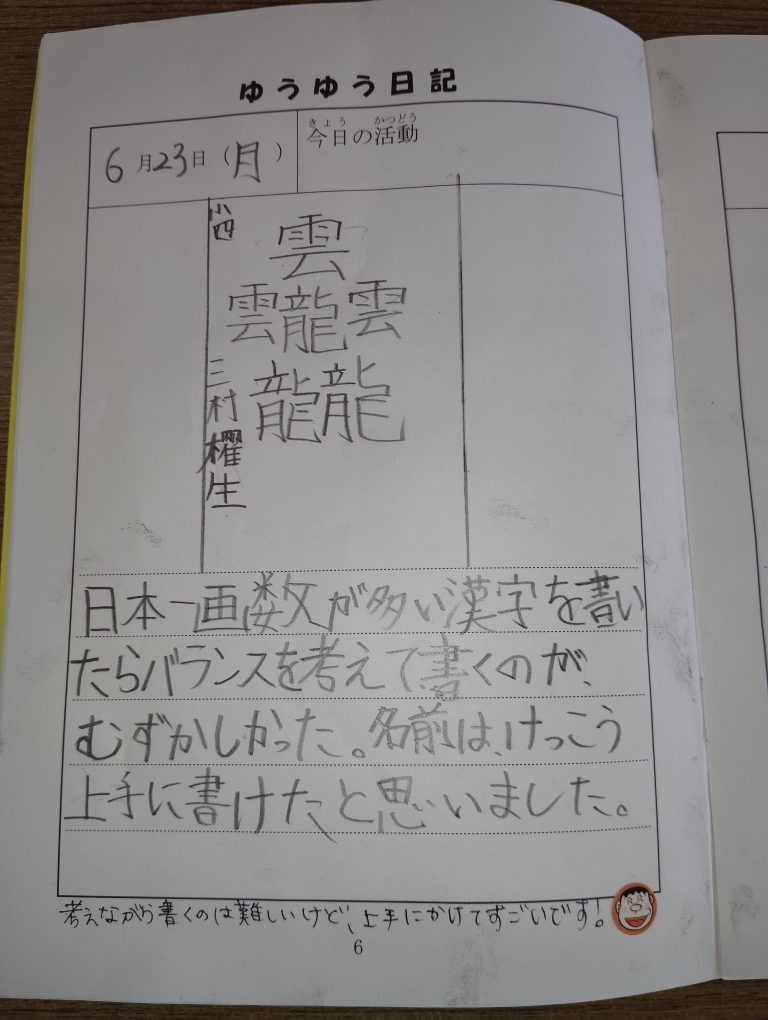 ゆうゆう日記
6月23日(月)
きょう かつどう
今日の活動
小四
雲
雲龍雲
龍龍
三村櫂生
日本一画数が多い漢字を書い
たらバランスを考えて書くのが、
むずかしかった。名前は、けっこう
上手に書けたと思いました。
考えながら書くのは難しいけど、上手にかけてすごいです!
6